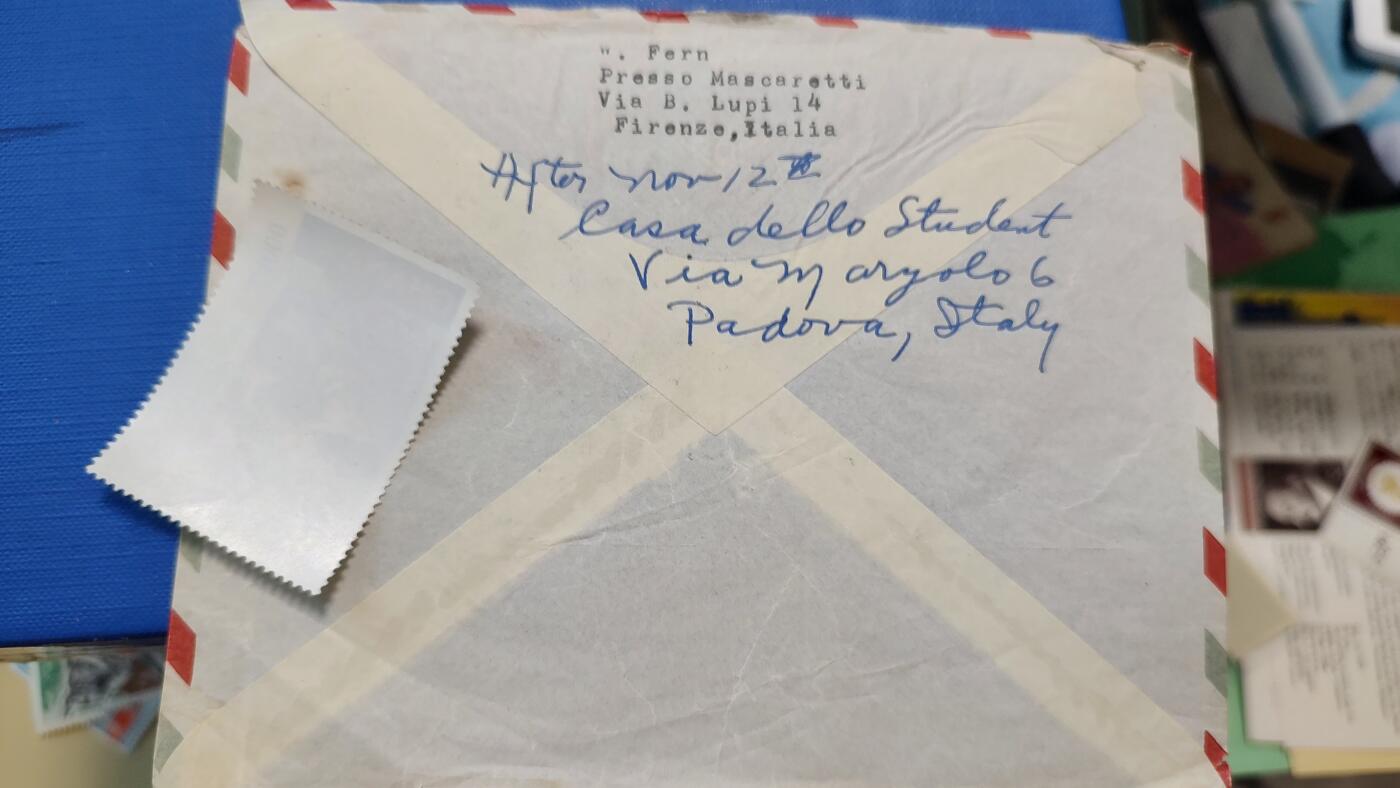 ". Fern
Presso Mascaretti
Via B. Lupi 14
Firenze,Italia
After Nov 12th
Casa dello Student
Via Margolo 6
Padova, Italy